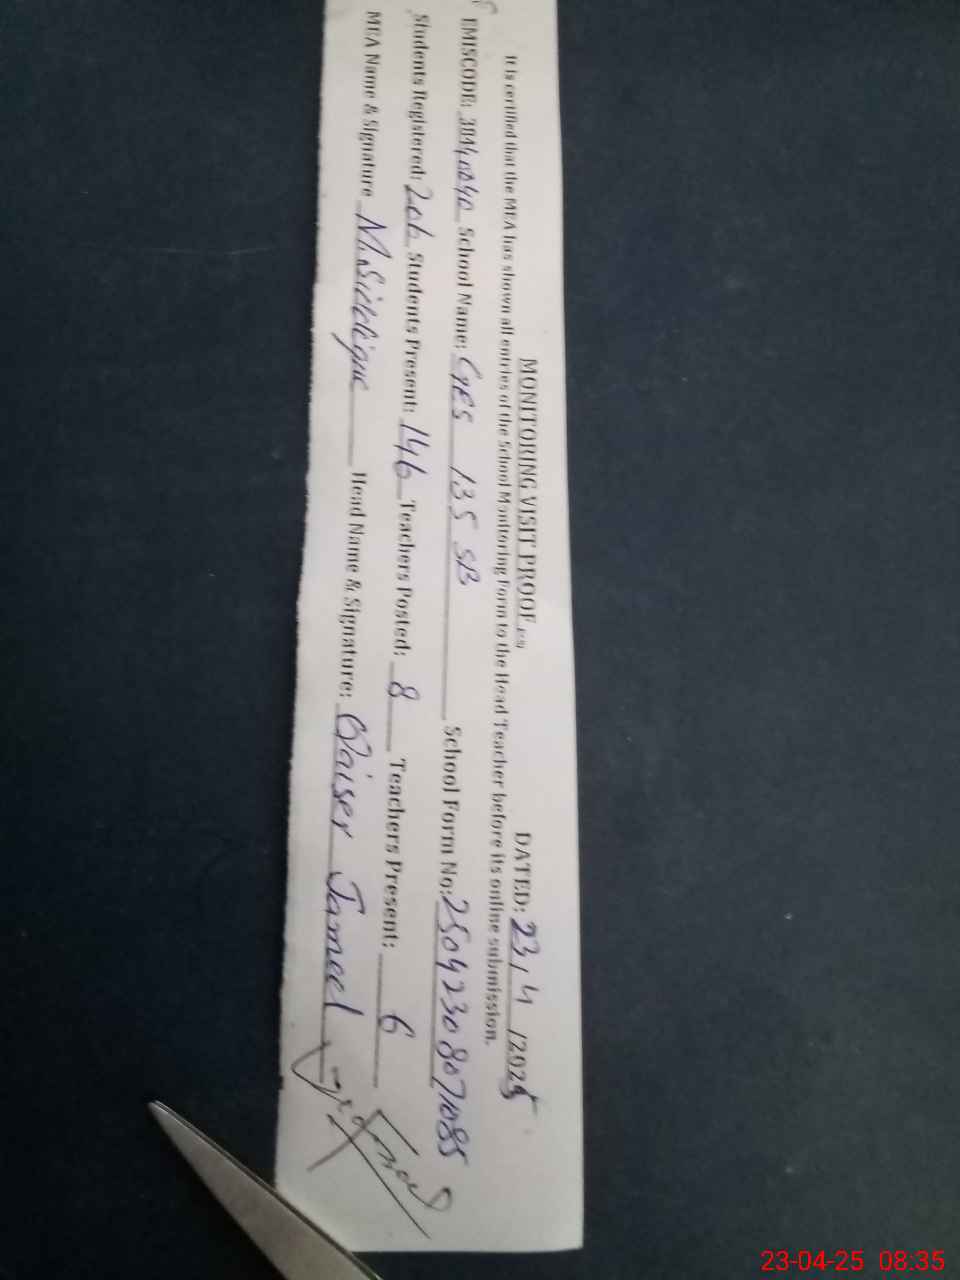 MONITORING VISIT PROOF DATED: 23/4/2025
It is certified that the MEA has shown all entries of the School Monitoring Form to the Head Teacher before its online submission.
EMISCODE: 38140040 School Name: GES 135 SB School Form No: 25042308071085
Students Registered: 206 Students Present: 146 Teachers Posted: 8 Teachers Present: 6
MEA Name & Signature M. Siddique Head Name & Signature: Qaiser Jameel
23-04-25 08:35